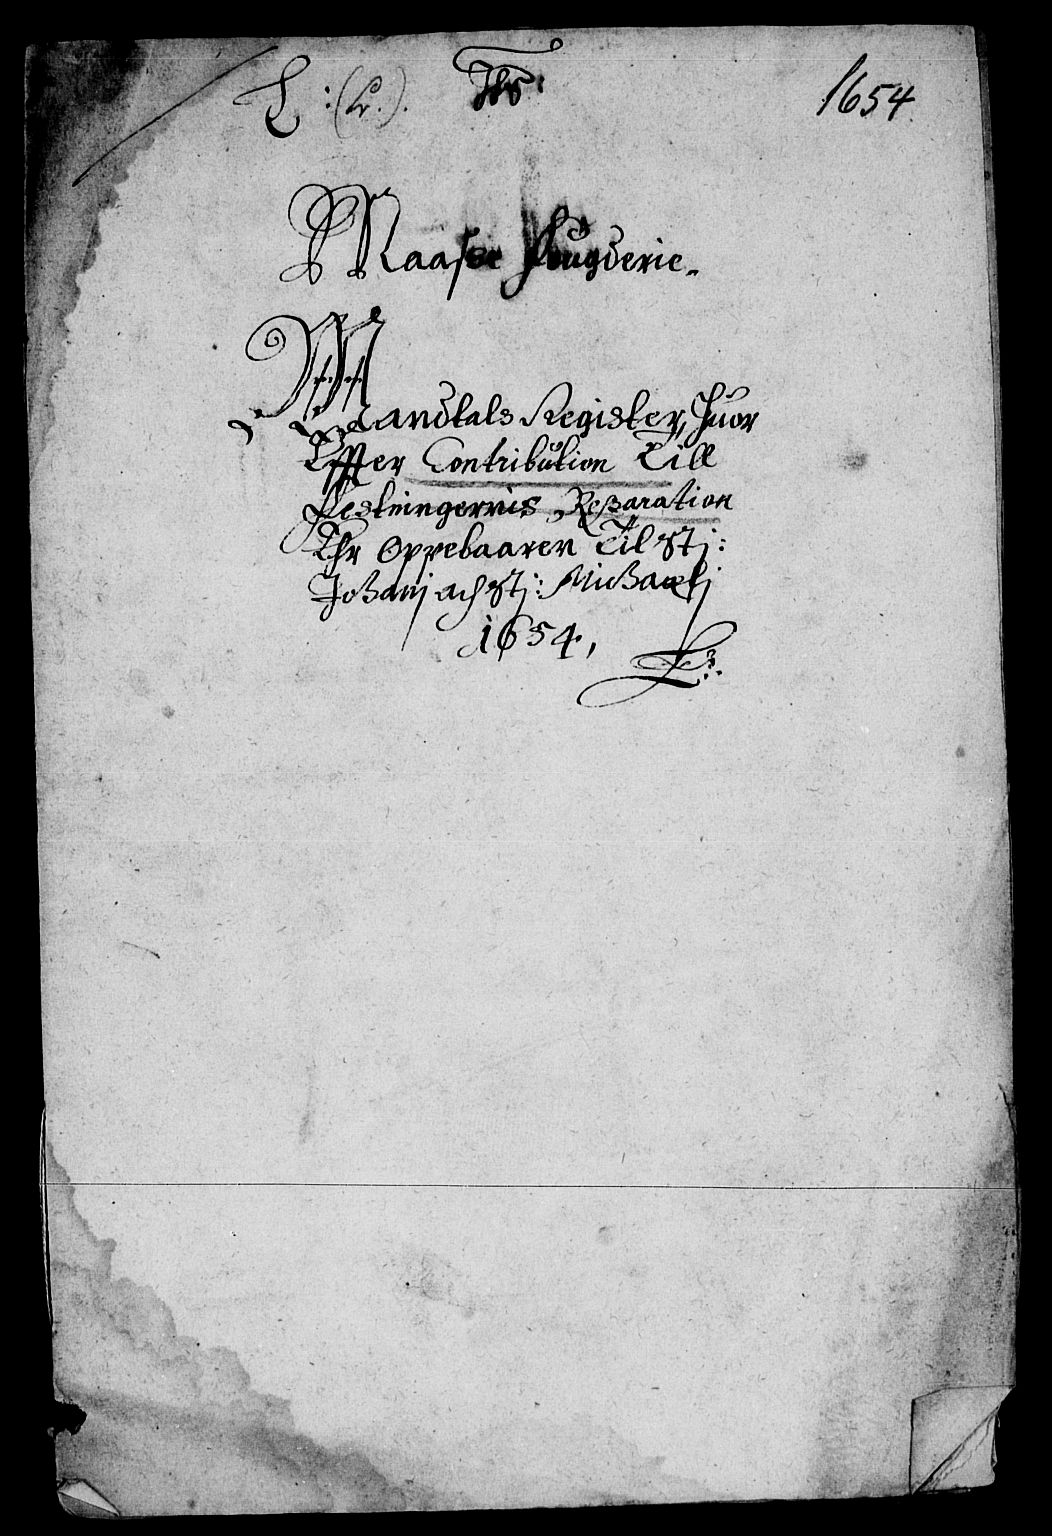 L : (Lr.). 1654
Raabye fougderie.
Mandtals Register, Huor
Effter Contribution Till
Festningernis Reparation
Ehr Oppebaaren Til Stj:
Johanj och Stj: Michaelj
1654,